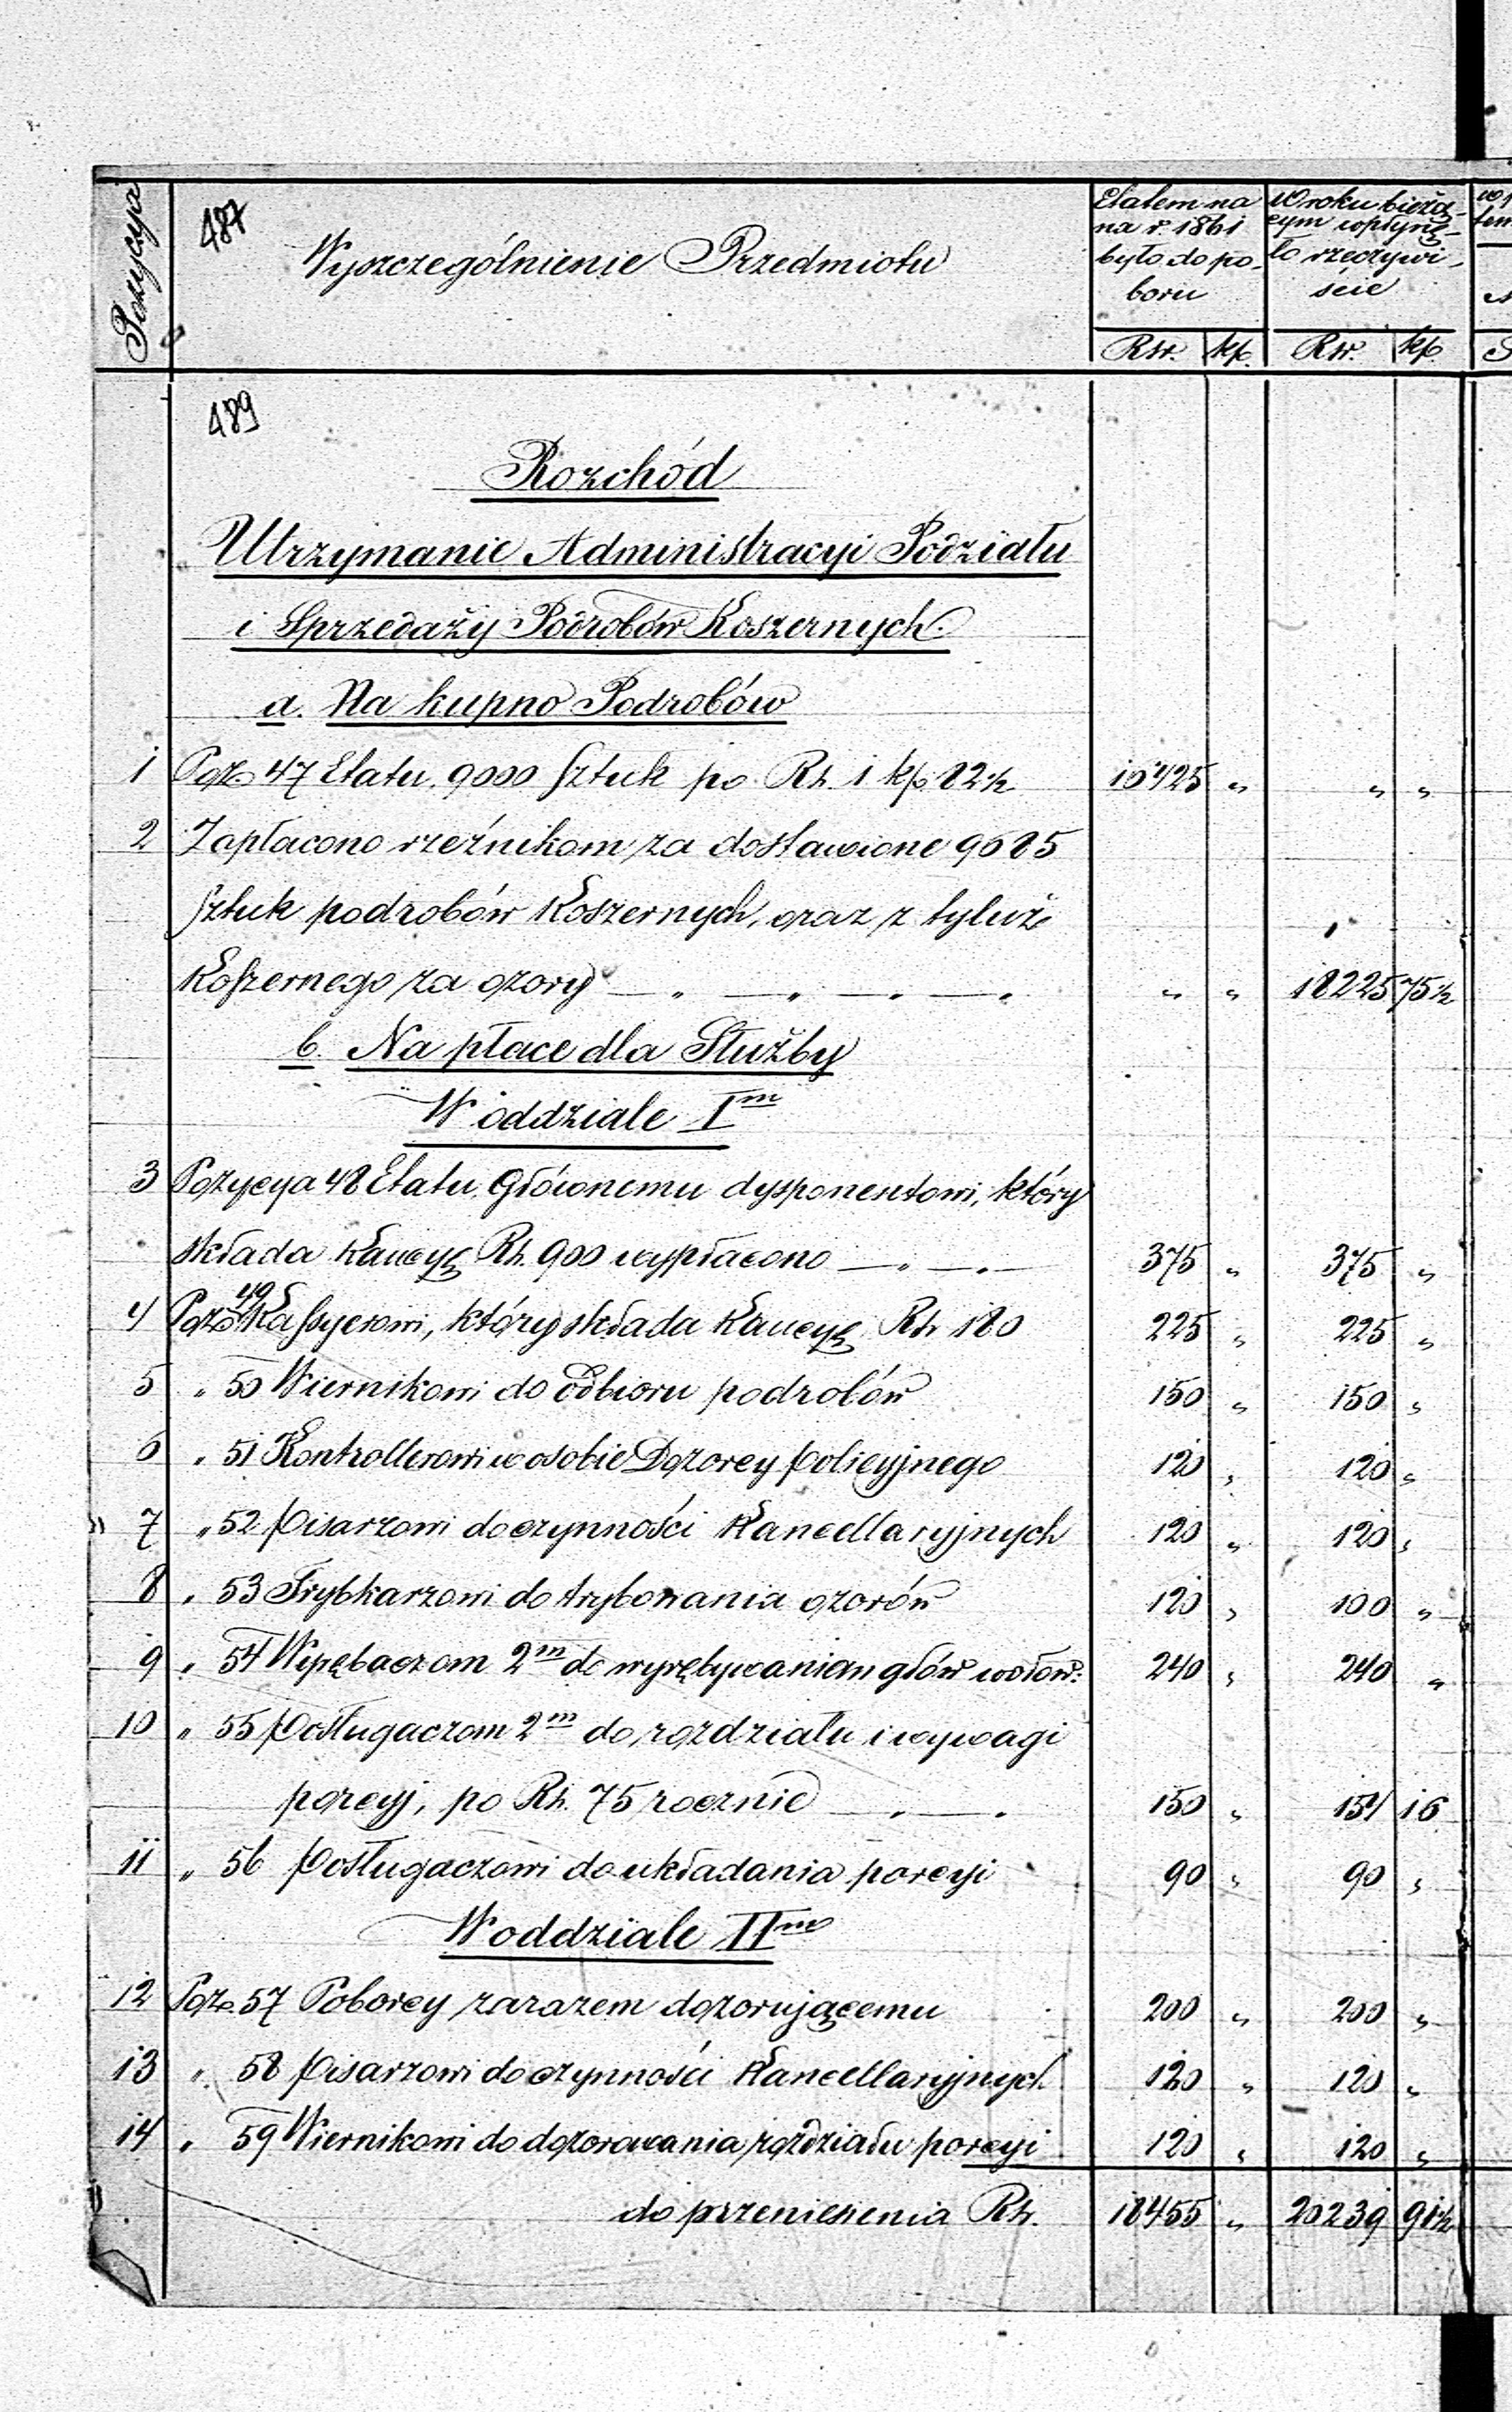 Pozycya
487
Wyszczególnienie Przedmiotu
Etatem na
na r. 1861
było do po-
boru
W roku bieżą-
cym wpłynę-
ło rzeczywi-
ście
Rsr. kp. Rsr. kp.
489
Rozchód
Utrzymanie Administracyi Podziału
i Sprzedaży Podrobów Koszernych.
a. Na kupno Podrobów
1 Poz. 47 Etatu. 9000 sztuk po Rs. 1 kp. 82½ 16425 " " "
2 Zapłacono rzeźnikom za dostawione 9685
sztuk podrobów Koszernych, oraz z tyluż
Koszernego za ozory — " — " — " — " " " 18225 75½
b. Na płace dla Służby
W oddziale I m
3 Pozycya 48 Etatu Głównemu dysponentowi, który
składa Kaucyę Rs. 900 wypłacono — " — " — 375 " 375 "
4 Poz. 49 Kassyerowi, który składa Kaucyę Rs. 180 225 " 225 "
5 " 50 Wiernikowi do odbioru podrobów 150 " 150 "
6 " 51 Kontrollerowi w osobie Dozorcy policyjnego 120 " 120 "
7 " 52 Pisarzowi do czynności Kancellaryjnych 120 " 120 "
8 " 53 Trybkarzowi do trybowania ozorów 120 " 100 "
9 " 54 Wyrębaczom 2 m do wyrębywania głów wołow: 240 " 240 "
10 " 55 Posługaczom 2 m do rozdziału i wywagi
porcyj, po Rs. 75 rocznie — " — " 150 " 154 16
11 " 56 Posługaczowi do układania porcyi 90 " 90 "
W oddziale II m
12 Poz. 57 Poborcy zarazem dozorującemu 200 " 200 "
13 " 58 Pisarzowi do czynności Kancellaryjnych 120 " 120 "
14 " 59 Wiernikowi do dozorowania rozdziału porcyi 120 " 120 "
do przeniesienia Rs. 18455 " 20239 91½